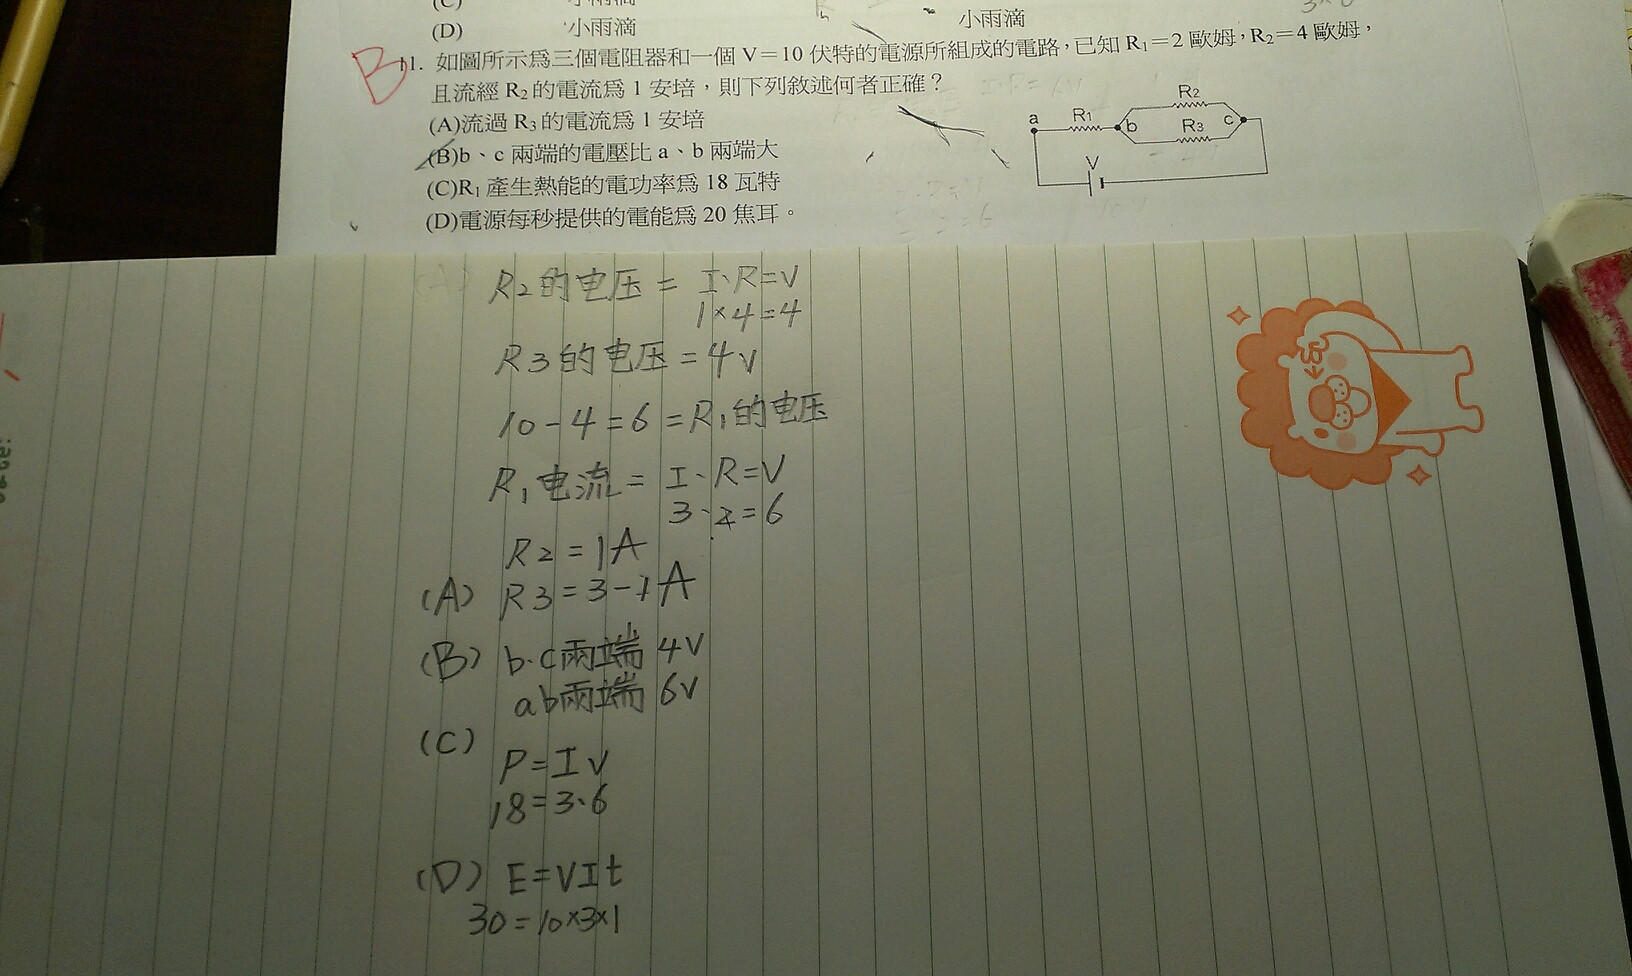 (C) 小雨滴
(D) 小雨滴 小雨滴
B
11. 如圖所示為三個電阻器和一個 V=10 伏特的電源所組成的電路,已知 R₁=2 歐姆,R₂=4 歐姆,
且流經 R₂的電流為 1 安培,則下列敘述何者正確?
(A)流過 R₃的電流為 1 安培
(B)b、c 兩端的電壓比 a、b 兩端大
(C)R₁ 產生熱能的電功率為 18 瓦特
(D)電源每秒提供的電能為 20 焦耳。
a R₁ b R₂ R₃ c
V
R2的电压 = I·R=V
1×4=4
R3的电压=4v
10-4=6=R₁的电压
R₁电流= I·R=V
3·2=6
R2=1A
(A) R3=3-1A
(B) b·c兩端 4V
ab兩端 6V
(C)
P=IV
18=3·6
(D) E=VIt
30=10×3×1